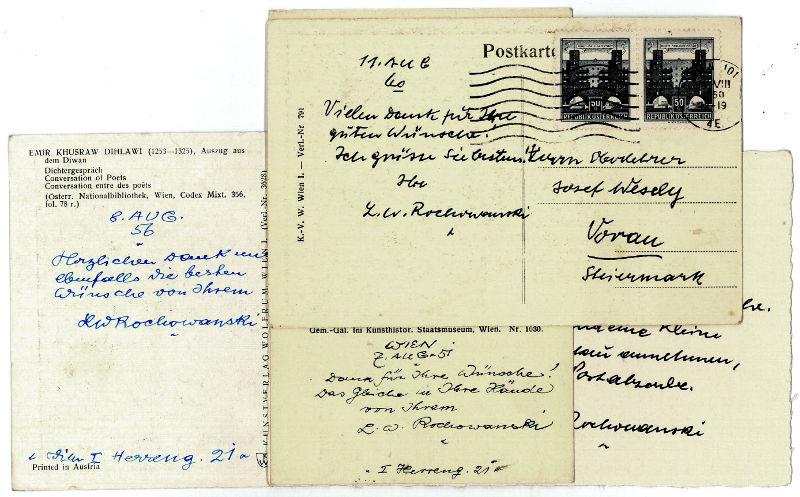 EMIR KHUSRAW DIHLAWI (1253—1325), Auszug aus
dem Diwan
Dichtergespräch
Conversation of Poets
Conversation entre des poëts
(Österr. Nationalbibliothek, Wien, Codex Mixt. 356,
fol. 78 r.)
8. AUG.
56
Herzlichen Dank und
ebenfalls die besten
Wünsche von Ihrem
LW Rochowanski
Wien I Herreng. 21
Printed in Austria
KUNSTVERLAG WOLFRUM WIEN I. (Verl.-Nr.
Postkarte
11. AUG
60
Vielen Dank für Ihre
guten Wünsche!
Ich grüsse Sie bestens!
Ihr
L. W. Rochowanski
K.-V. W. Wien I. — Verl.-Nr 791
50
REPUBLIK ÖSTERREICH
50
REPUBLIK ÖSTERREICH
101
VIII
60
-19
4E
Herrn Oberlehrer
Josef Wesely
Vorau
Steiermark
Gem.-Gal. im Kunsthistor. Staatsmuseum, Wien. Nr. 1030.
WIEN
7. AUG. 51
Dank für Ihre Wünsche!
Das Gleiche in Ihre Hände
von Ihrem
L. W. Rochowanski
I Herreng. 21
eine kleine
annehmen,
Rochowanski